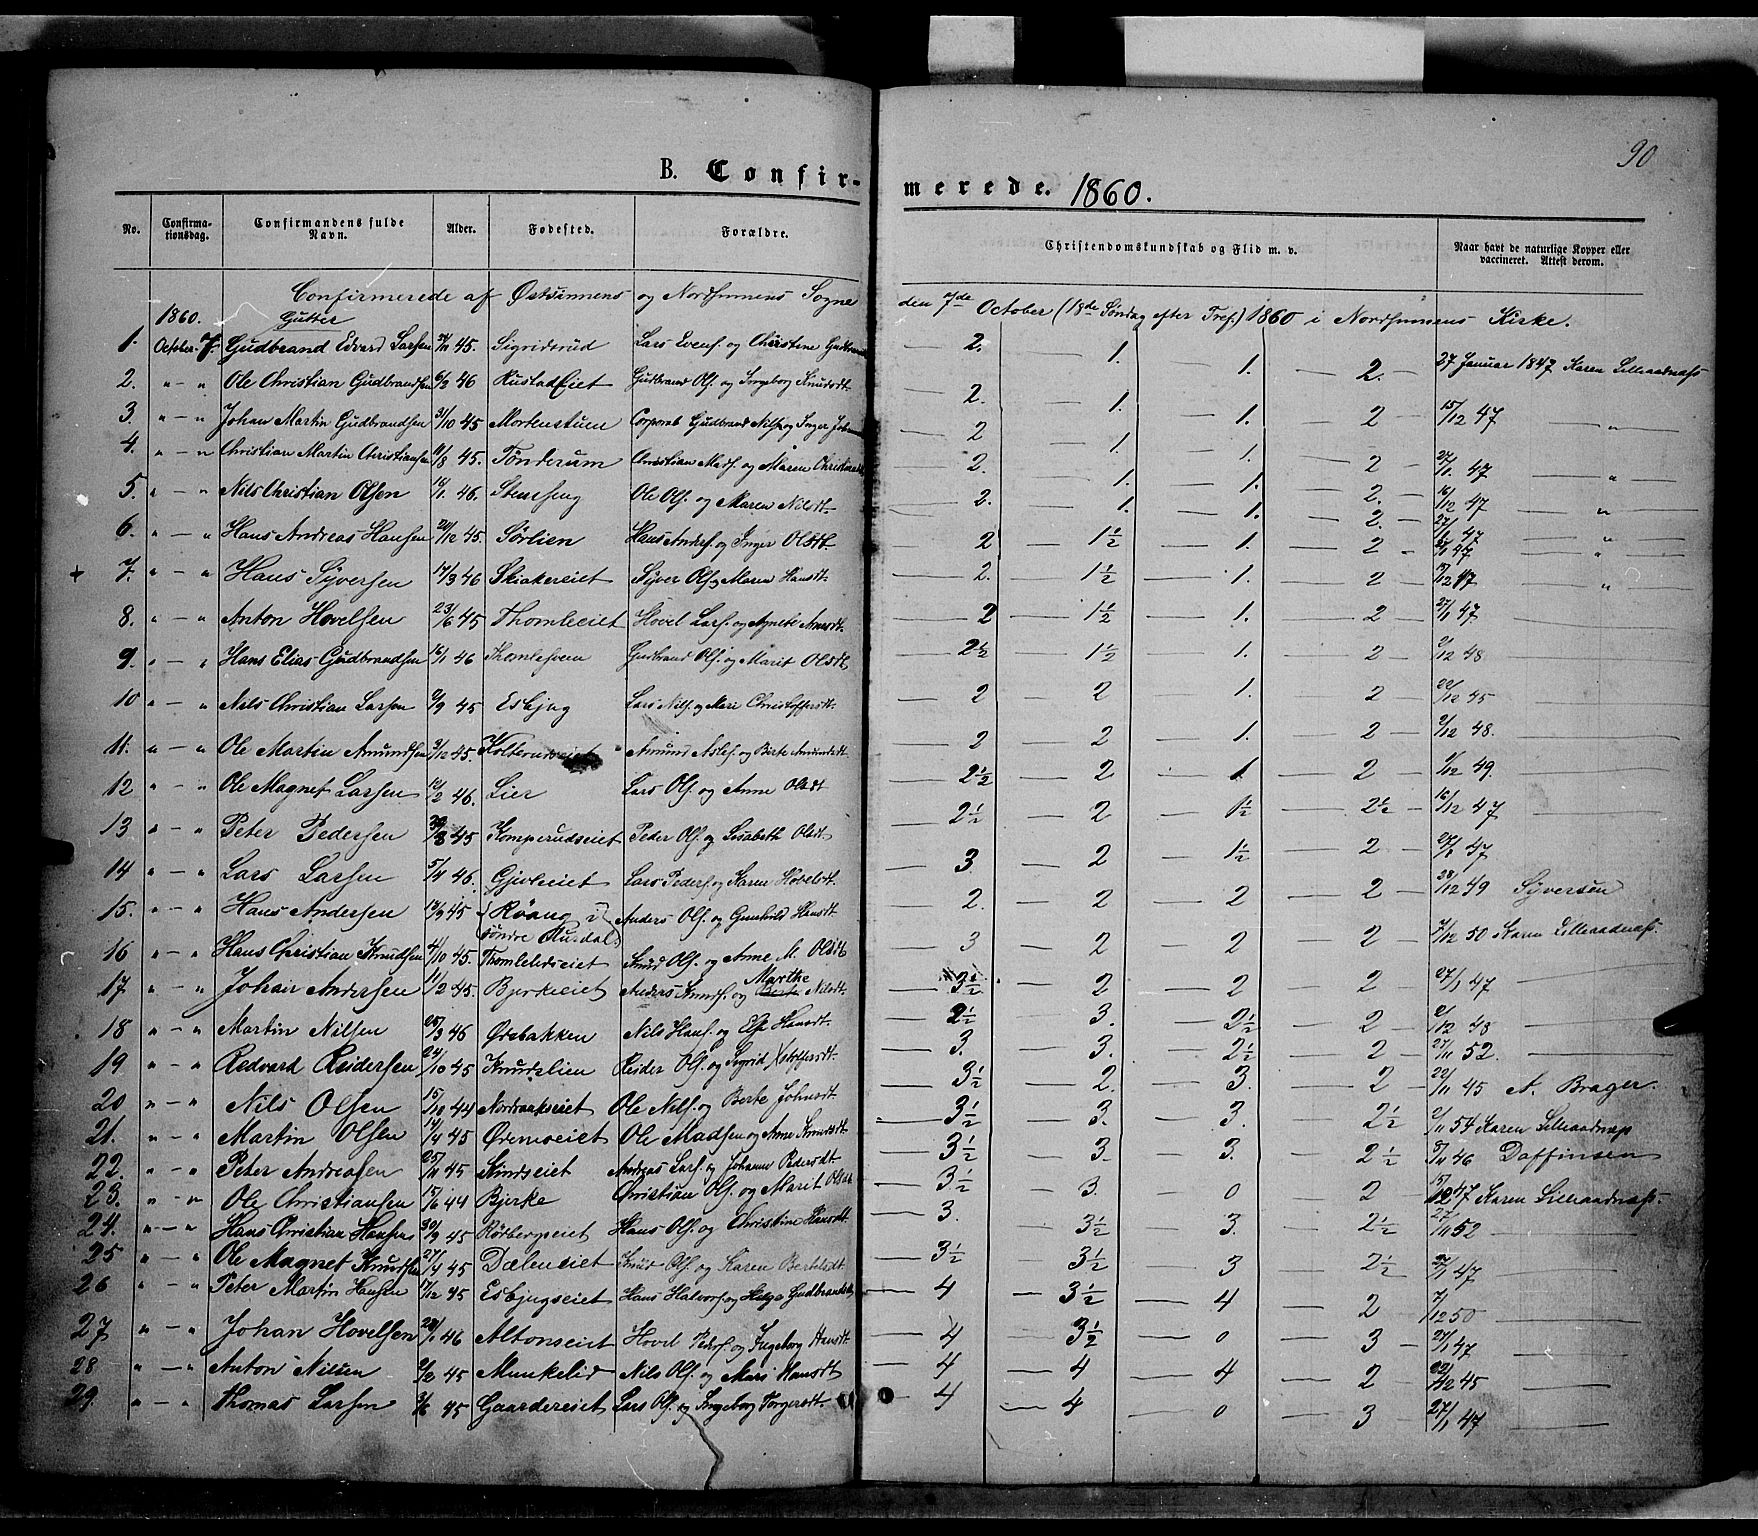 90
B. Confir-
merede. 1860.
No. Confirma-tionsdag. Confirmandens fulde Navn. Alder. Fødested. Forældre. Christendomskundskab og Flid m. v. Naar havt de naturlige Kopper eller vaccineret. Attest derom.
Confirmerede af Østsinnens og Nordsinnens Sogne den 7de October (18de Søndag efter Tref.) 1860 i Nordsinnens Kirke.
1860. Gutter
1. October 7. Gudbrand Edvard Larsen 45. Sigridsrud Lars Evens. og Christine 2. 1. 1. 2. 27 Januar 1847 Karen Lilleaadnæss
2. " — " Ole Christian Gudbrandsen 6/3 46 Rustadeiet Gudbrand Ols. og Ingeborg Knudsdt. 2. 1. 1. 2 15/12 47 "
3. " — " Johan Martin Gudbrandsen 31/10 45 Mortenstuen Corporal Gudbrand Nils. og Inger 2 1. 1. 2 27/1 47 "
4. " — " Christian Martin Christiansen 11/8 45. Tønderum Christian Mads. og Maren 2. 1. 1. 2. 16/12 47 "
5. " — " Nils Christian Olsen 18/1 46. Stenseng Ole Ols. og Maren Nilsdt. 2. 1. 1. 2. 27/1 47 "
6. " — " Hans Andreas Hansen 45. Sørlien Hans Anders. og Inger Olsdt. 2 1½ 1. 2 47 "
7. " — " Hans Syversen 17/3 46 Skiakereiet Syver Ols. og Maren Hansdt. 2. 1½ 1. 2 47 "
8. " — " Anton Hovelsen 23/6 45 Thomleeiet Hovel Lars. og Agnete 2 1½ 1. 2 27/1 47
9. " — " Hans Elias Gudbrandsen 16/1 46 Thomlesveen Gudbrand Ols. og Marit Olsdt. 2½ 1½ 1. 2 2/12 48
10 " — " Nils Christian Larsen 2/9 45 Esbjug Lars Nils. og Mari Christoffersdt. 2 2 1. 2 22/12 45
11. " — " Ole Martin Amundsen 3/12 45. Amund Aslef. og Berte Amundsdt. 2 2 1. 2 2/12 48.
12 " — " Ole Magnef Larsen 12/2 46. Lier Lars Ols. og Anne Olsdt 2½ 2 1. 2 1/12 49.
13 " — " Peter Pedersen 45 Komperudseiet Peder Ols. og Lisabeth Olsdt. 2½ 2 1½ 2½ 16/12 47
14 " — " Lars Larsen 5/4 46. Gjivleeiet Lars Peders. og Karen Hovelsdt. 3 2 1½ 2 47
15. " — " Hans Andersen 45 Røang i søndre Aurdal Anders Ols. og Gunhild Hansdt. 2. 2 2 2 28/12 49 Syversen
16 " — " Hans Christian Knudsen 4/10 45. Knud Ols. og Anne M. Olsdt 3 2 2 2 7/12 50 Karen Lilleaadnæss.
17. " — " Johan Andersen 11/2 45. Bjerkeeiet Anders Amunds. og Marthe Nilsdt. 3½ 2 2 2 27/1 47
18 " — " Martin Nilsen 25/3 46 Øvsbakken Nils Hans. og Else Hansdt. 2½ 3. 2½ 2 2/12 48
19 " — " Redvard Reidersen 24/10 45 Knudslien Reider Ols. og Sigrid Xstoffersdt. 3. 3. 2½ 2 27/11 52.
20 " — " Nils Olsen 15/10 44 Nordraakseiet Ole Nils. og Berte Johnsdt. 3½ 2. 3. 2 22/11 45 A. Brager.
21. " — " Martin Olsen 14/4 45 Øremoeiet Ole Madsen og Anne 3½ 3. 3. 2½ 2/11 54 Karen Lilleaadnæss
22. " — " Peter Andreasen 25/11 45 Kindseiet Andreas Lars. og Johanne Pedersdt. 3½ 3. 3. 2½ 8/11 46 Daffinsen
23. " — " Ole Christiansen 15/6 44 Bjerke Christian Ols. og Marit Olsdt. 3½ 3. 0 2 15/12 47 Karen Lilleaadnæss.
24. " — " Hans Christian Hansen 30/9 45 Rørbergseiet Hans Ols. og Christine Hansdt. 3. 3½ 3. 2½ 27/11 52
25 " — " Ole Magnet Knudsen 27/4 45 Dæleneiet Knud Ols. og Karen Bertelsdt. 3½ 3½ 3 2½ 27/1 47
26 " — " Peter Martin Hansen 17/12 45 Esbjugseiet Hans Halvors. og Helga Gudbrandsdt. 4 3½ 4 2 7/12 50
27 " — " Johan Hovelsen 46 Altonseiet Hovel Peders. og Ingeborg Hansdt. 4 3½ 0 3 27/1 47
28 " — " Anton Nilsen 2/2 45 Munkelid Nils Ols. og Mari Hansdt. 4 4 4 2 22/12 45
29. " — " Thomas Larsen 3/6 45 Gaardereiet Lars Ols. og Ingeborg Torgersdt. 4 4 0 3 27/1 47